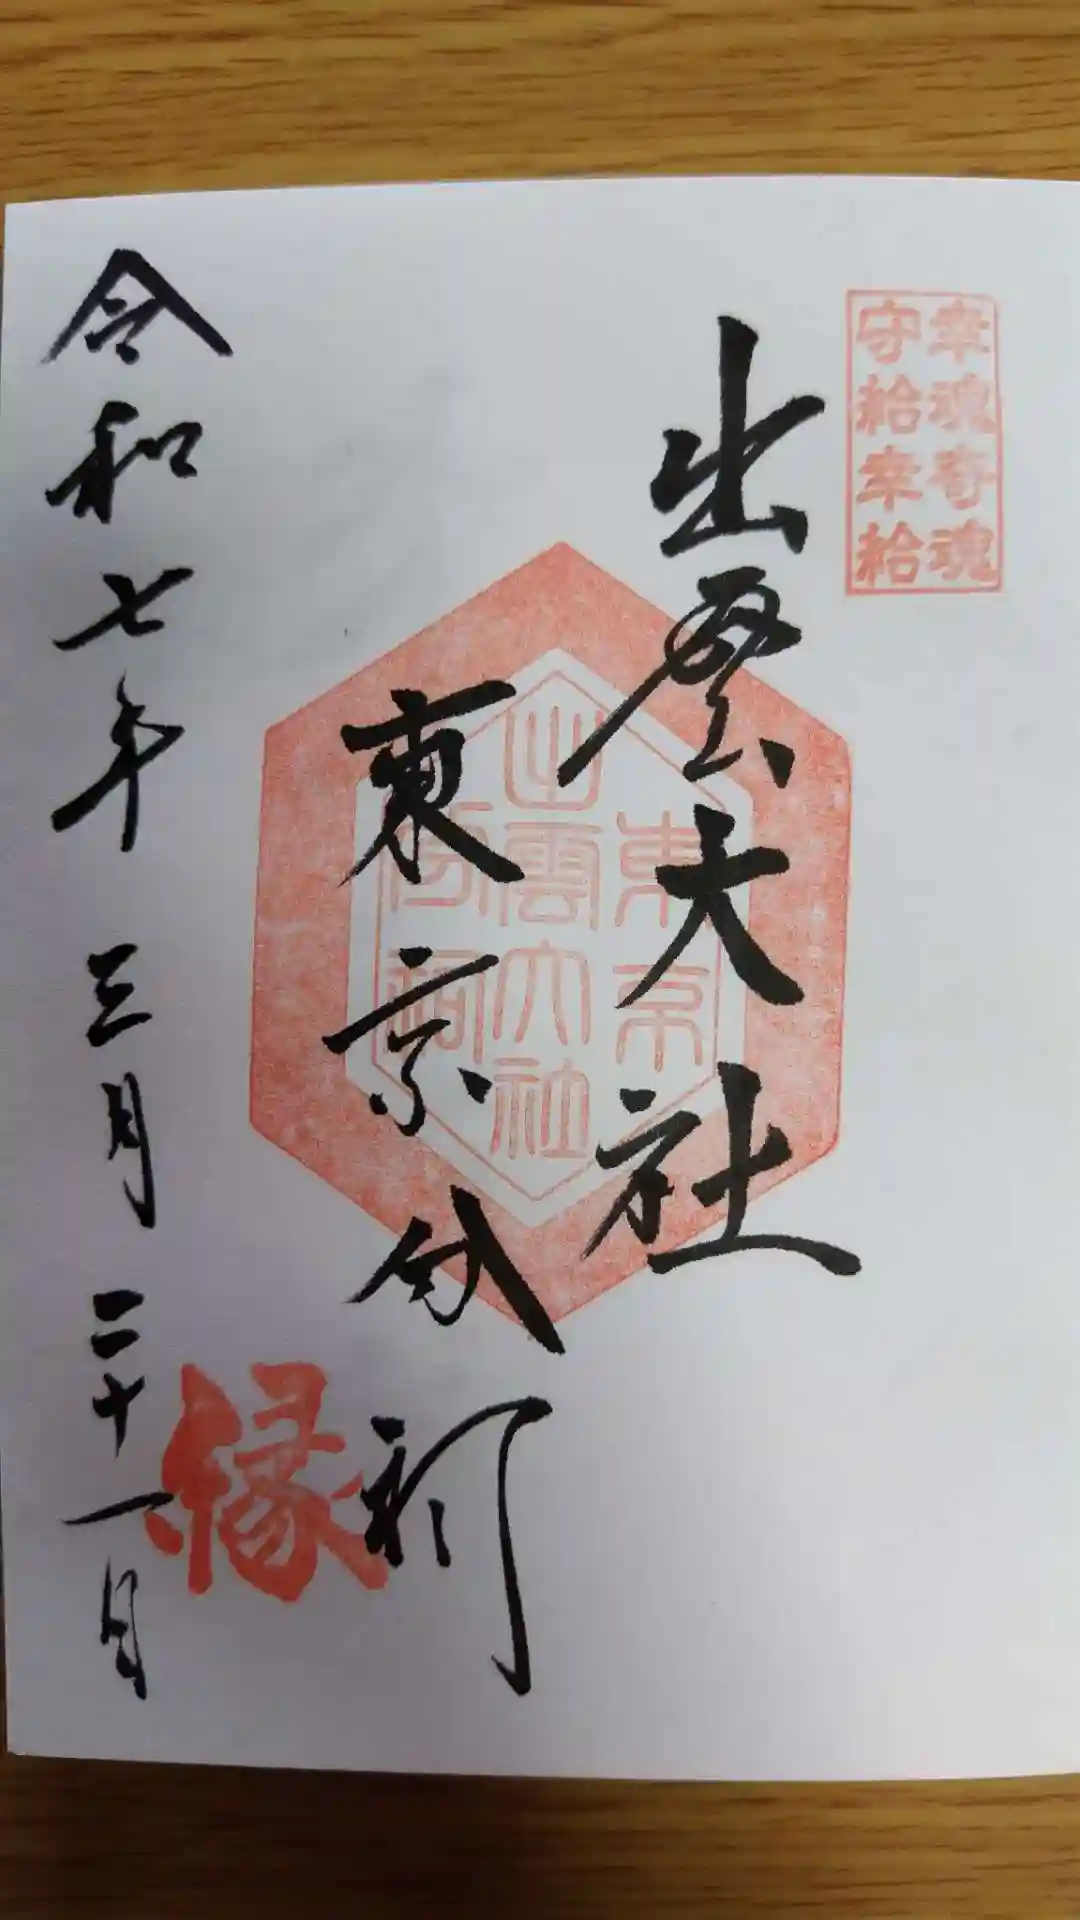 幸魂奇魂
守給幸給
出雲大社
東京分祠
東京
出雲大社
分祠
縁
令和七年三月二十一日